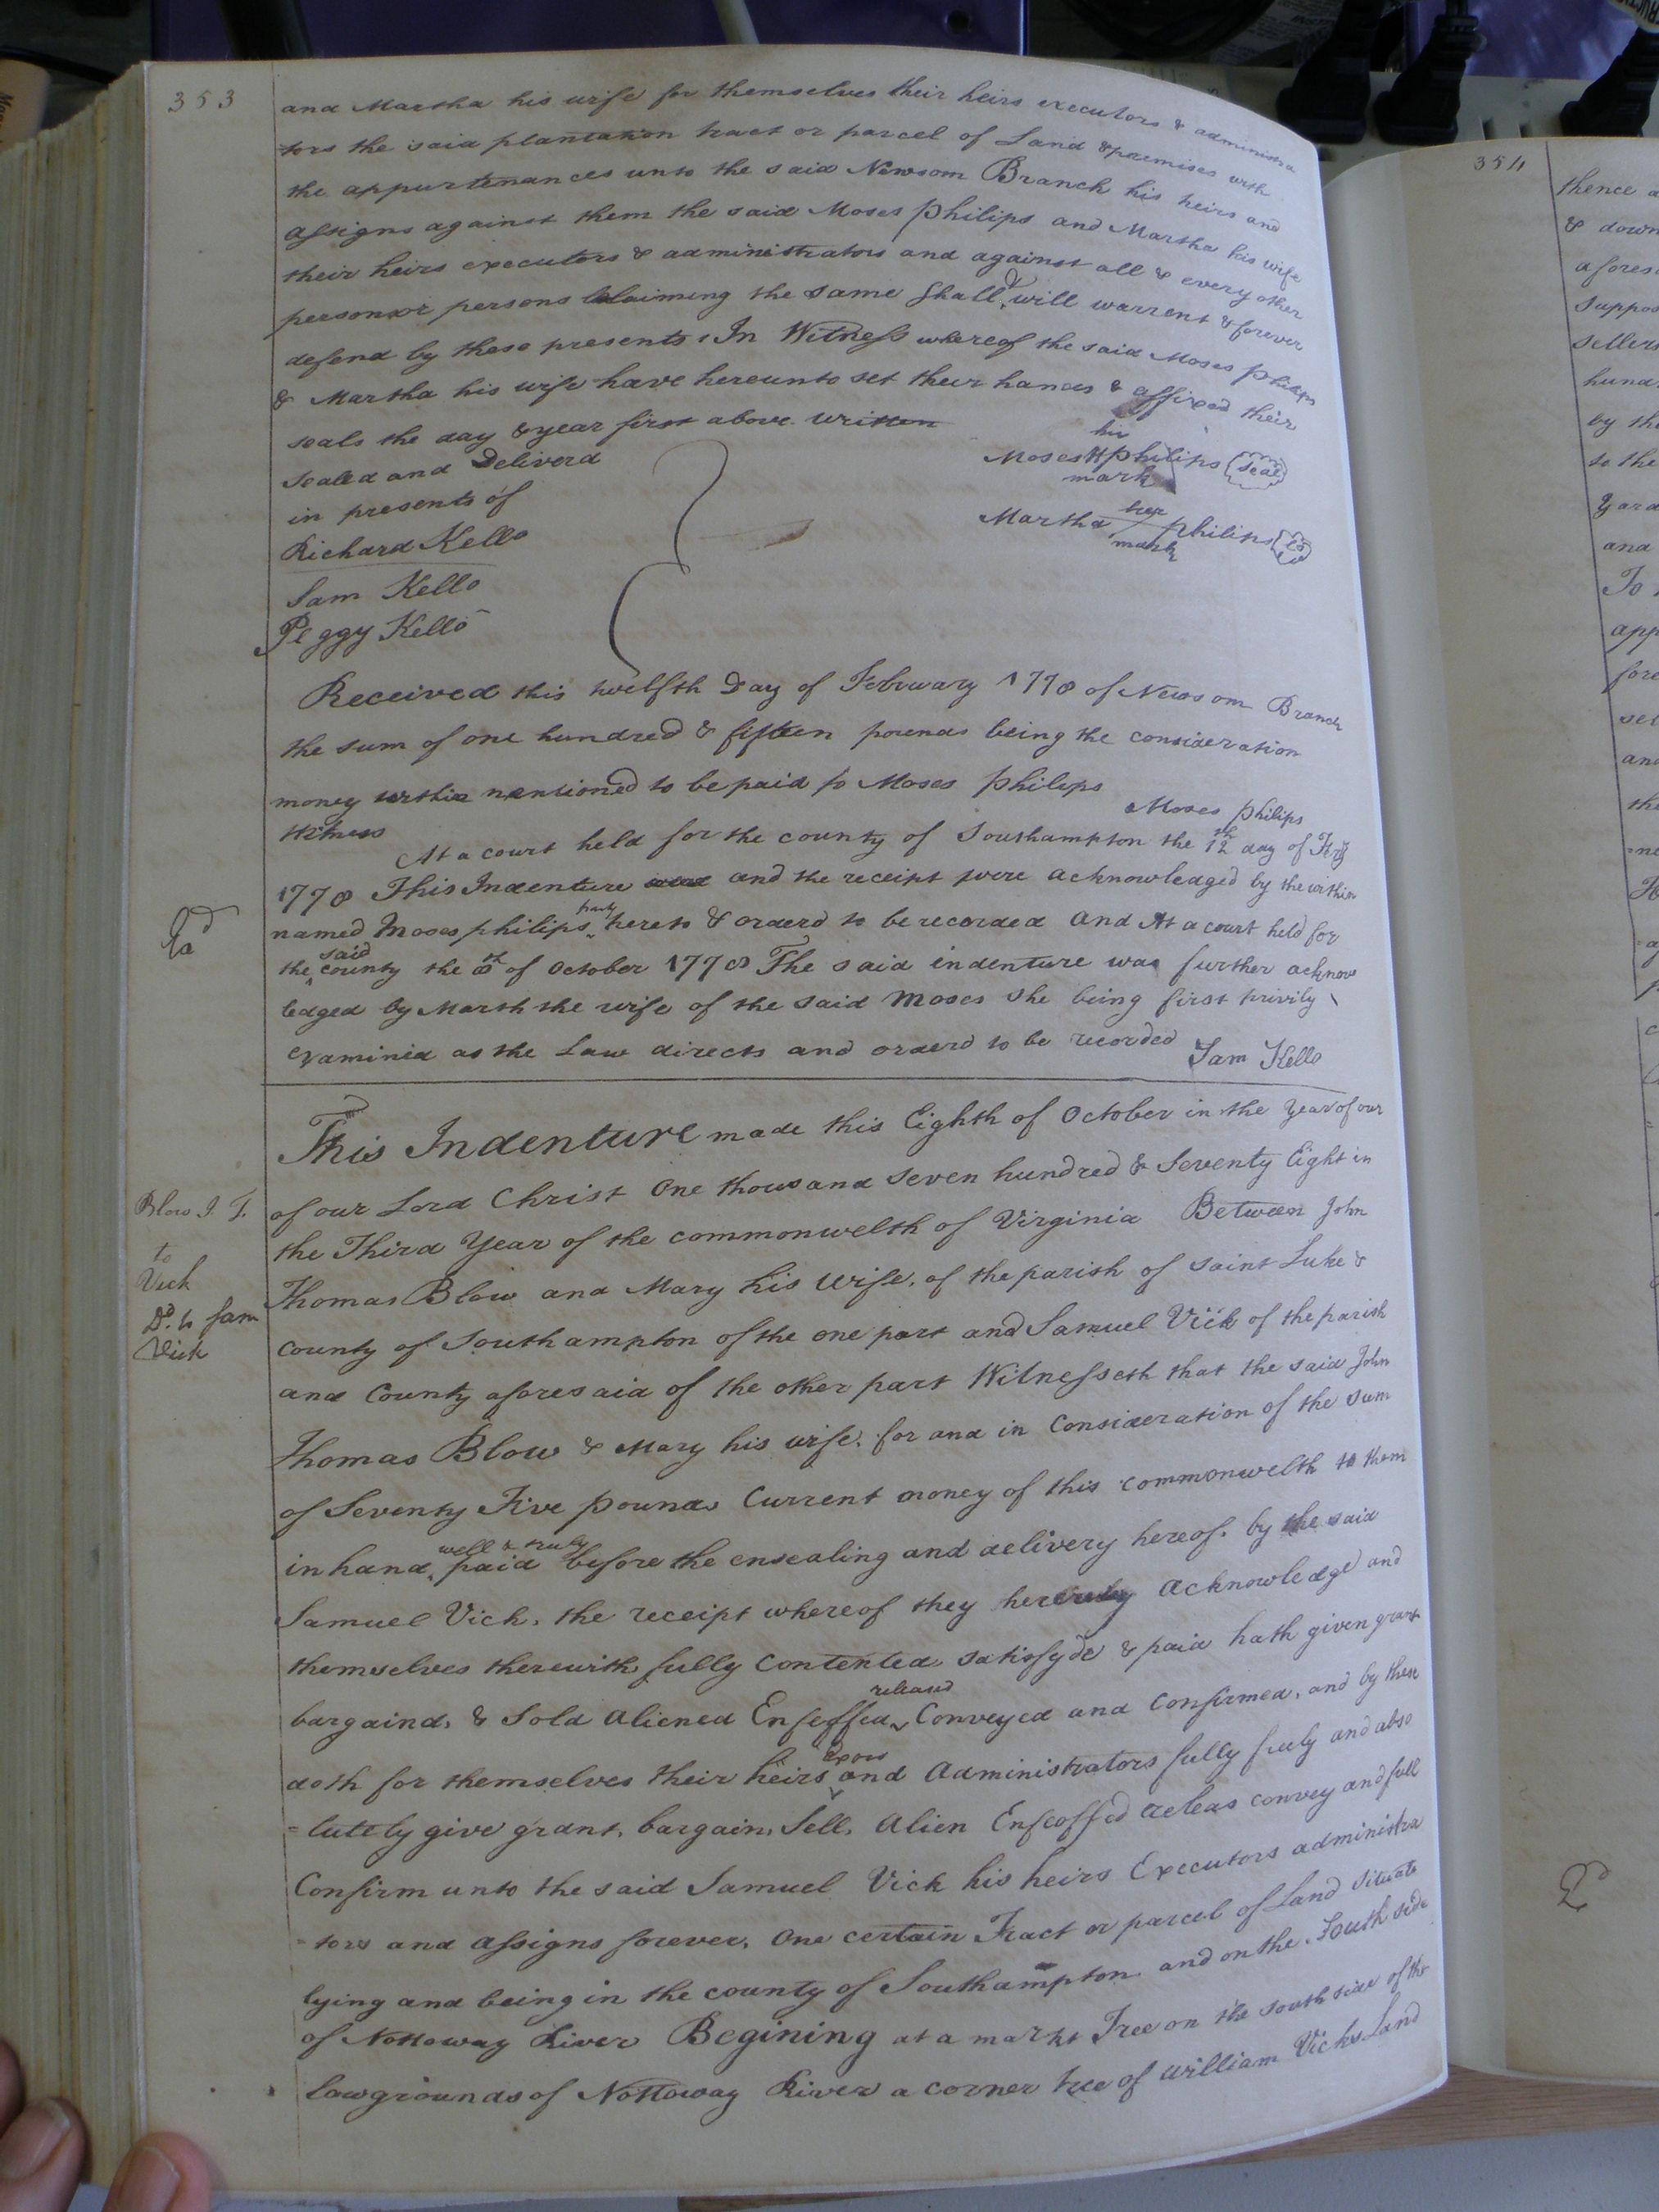 353
and Martha his wife for themselves their heirs executors & administra
=tors the said plantation tract or parcel of Land & premises with
the appurtenances unto the said Newsom Branch his heirs and
assigns against them the said Moses philips and Martha his wife
their heirs executors & administrators and against all & every other
person or persons Claiming the same shall & will warrent & forever
defend by these presents. In Witness whereof the said Moses philips
& Martha his wife have hereunto set their hands & affixed their
seals the day & year first above written
Sealed and Deliverd
in presents of
Richard Kello
Sam Kello
Peggy Kello
his
Moses philips seal
mark
her
Martha philips
mark
Received this twelfth Day of February 1778 of Newsom Branch
the sum of one hundred & fifteen pounds being the consideration
money within mentioned to be paid to Moses philips
Witness
Moses philips
At a court held for the county of Southampton the 12th day of
1778 This Indenture and the receipt were acknowledged by the within
named Moses philips party hereto & orderd to be recorded and At a court held for
the said county the 8th of October 1778 The said indenture was further acknow
ledged by Marth the wife of the said Moses she being first privily
examined as the Law directs and orderd to be recorded
Sam Kello
This Indenture made this Eighth of October in the Year of our
of our Lord Christ One thousand Seven hundred & Seventy Eight in
the Third Year of the commonwelth of Virginia Between John
Thomas Blow and Mary his wife, of the parish of Saint Luke &
county of Southampton of the one part and Samuel Vick of the parish
and County aforesaid of the other part Witnesseth that the said John
Thomas Blow & Mary his wife, for and in Consideration of the sum
of Seventy Five pounds Current money of this commonwelth to them
in hand well & truly paid before the ensealing and delivery hereof. by the said
Samuel Vick, the receipt whereof they hereby acknowledge and
themselves therewith fully Contented satisfyde & paid hath given grant
bargaind, & Sold aliened Enfeffed released Conveyed and Confirmed, and by these
doth for themselves their heirs Exors and Administrators fully freely and abso
=lutely give grant, bargain, Sell, Alien Enfeoffed releas convey and full
Confirm unto the said Samuel Vick his heirs Executors administra
=tors and assigns forever, One certain Tract or parcel of Land Situate
lying and being in the county of Southampton and on the South side
of Nottoway River Begining at a markt Tree on the south side of the
lowgrounds of Nottoway River a corner tree of William Vicks Land
Blow J. T.
to
Vick
Dd. to Sam
Vick
354
thence
& down
afores
Suppos
sellers
hund
by th
to the
Yard
and
To
app
fore
set
and
the